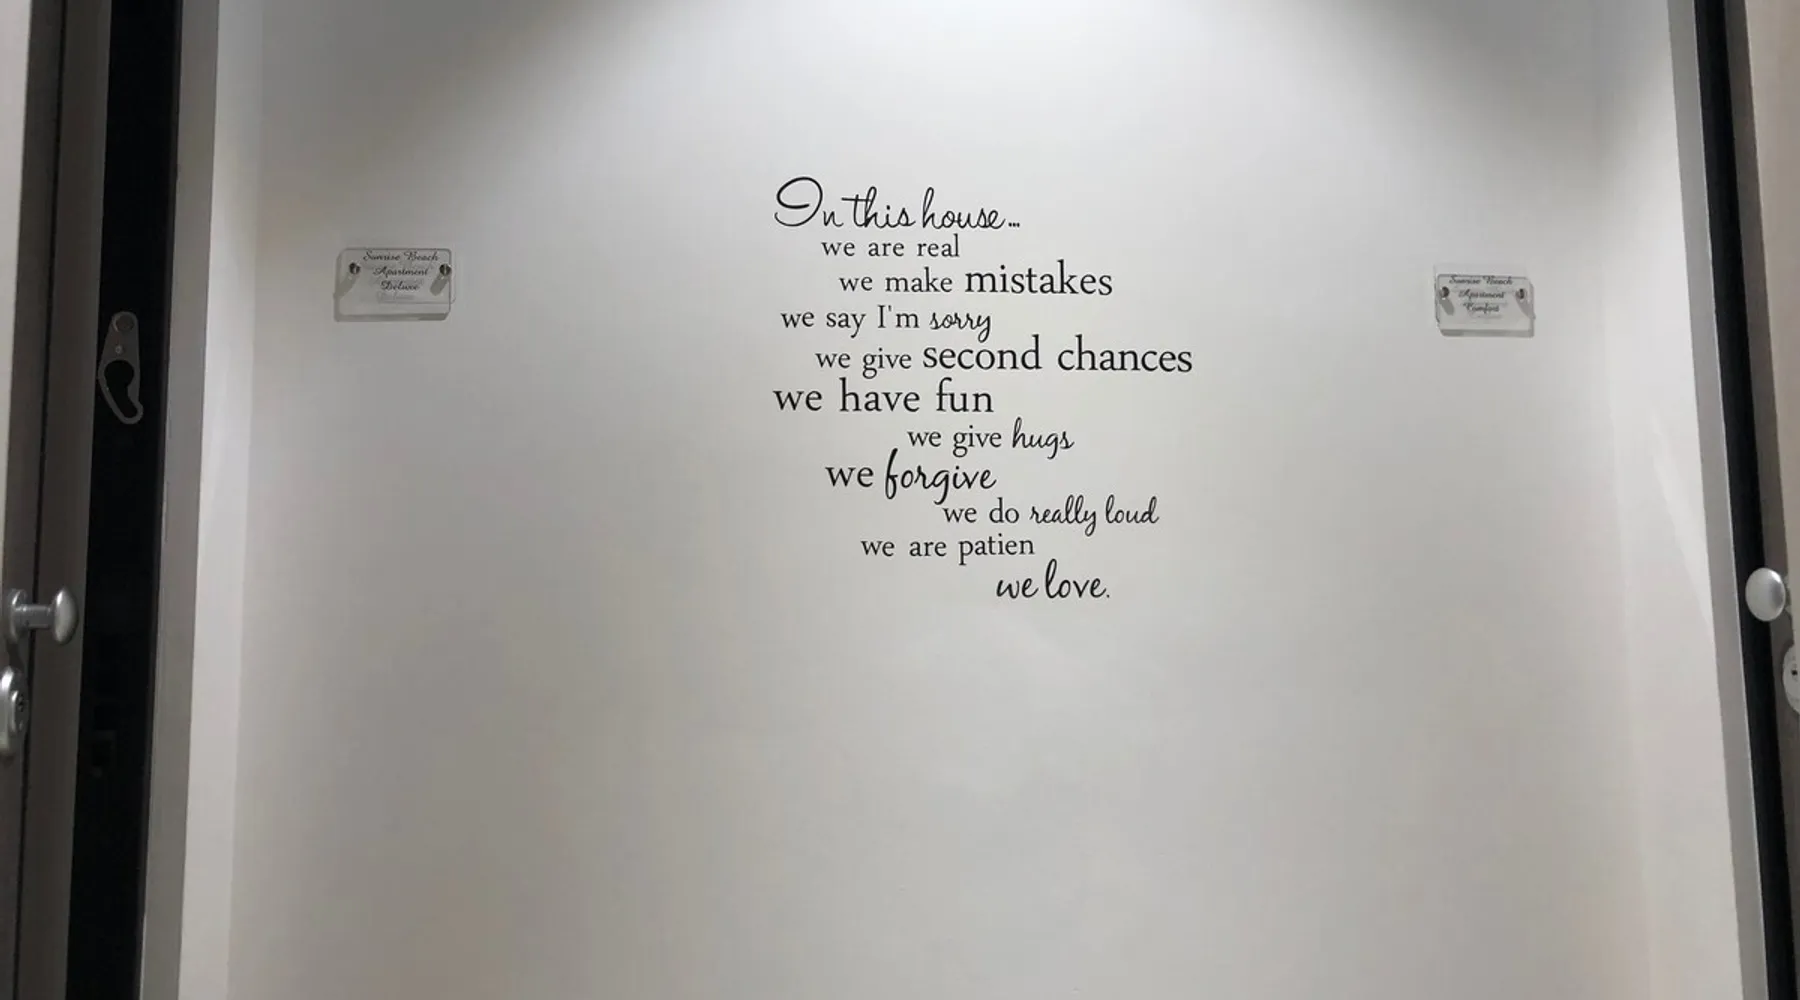 In this house...
we are real
we make mistakes
we say I'm sorry
we give second chances
we have fun
we give hugs
we forgive
we do really loud
we are patien
we love.
Sunrise Beach
Apartment
Deluxe
Sunrise Beach
Apartment
Comfort